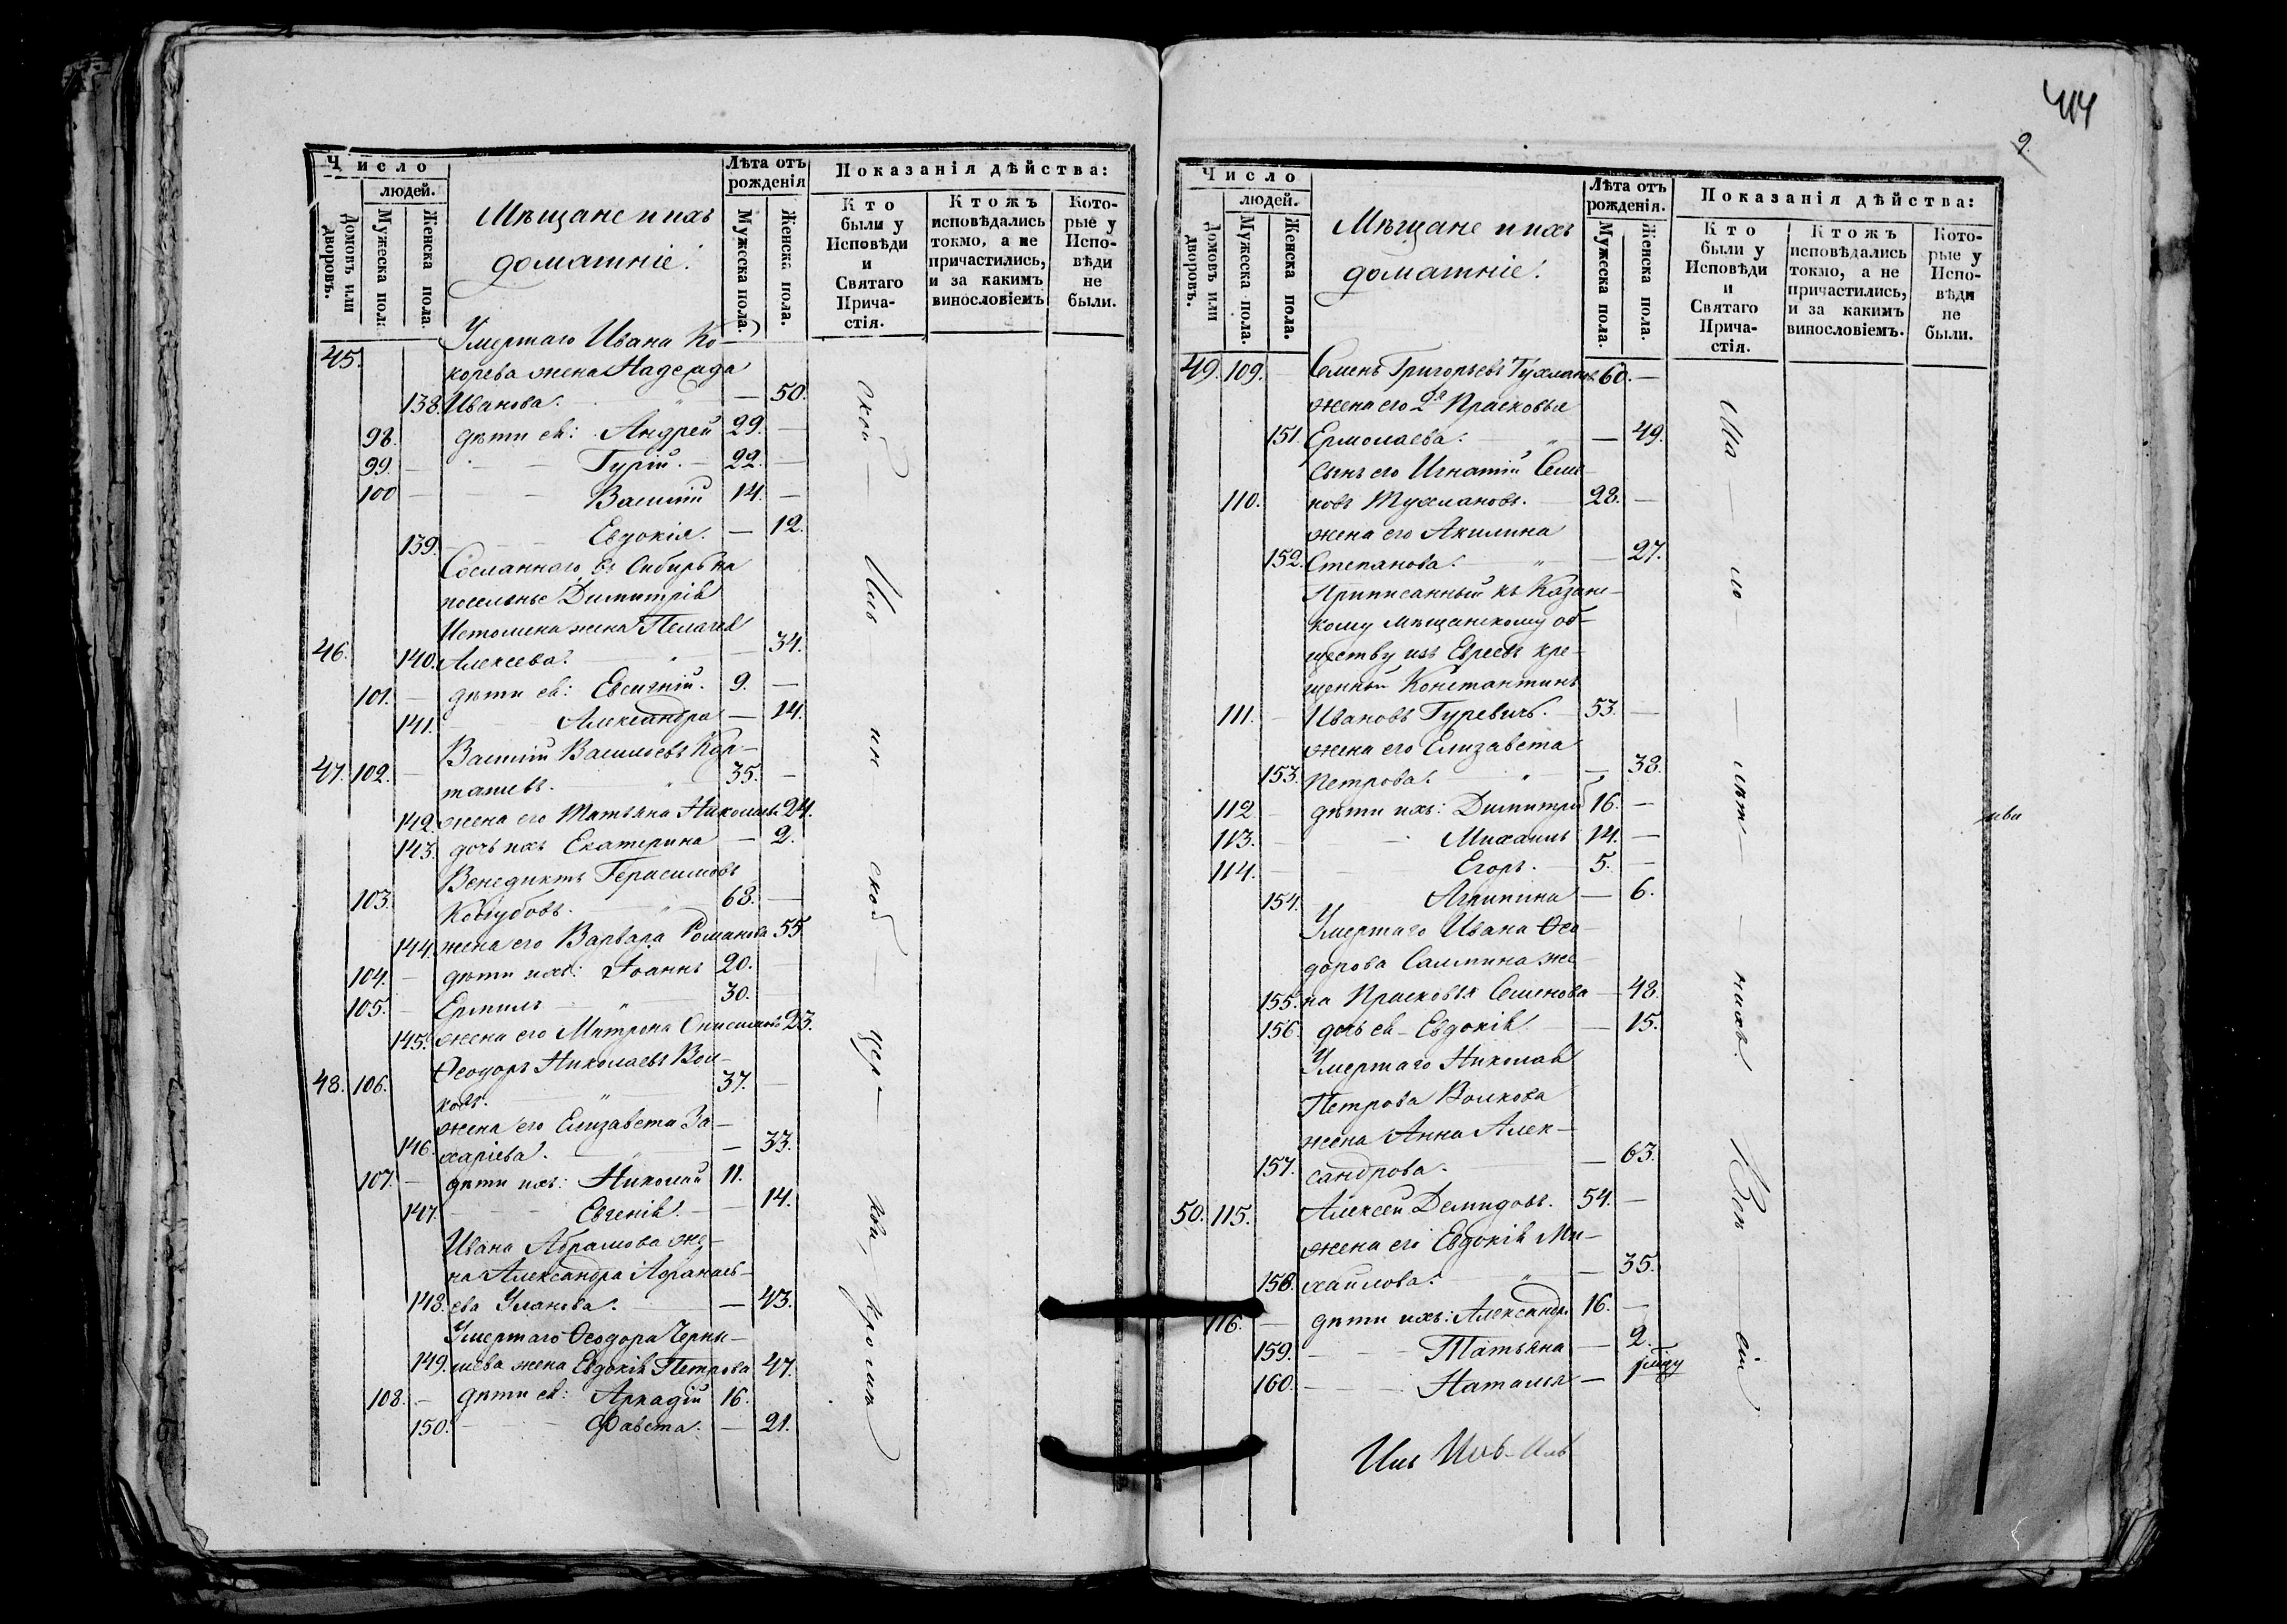 Число
людей.
Домовъ или дворовъ.
Мужеска пола
Женска пола.
Мѣщане и ихъ
домашніе.
Лѣта отъ рожденія
Мужеска пола.
Женска пола.
Показанія дѣйства:
Кто были у Исповѣди и Святаго Прича-стія.
Ктожъ исповѣдались токмо, а не причастились, и за какимъ винословіемъ
Кото-рые у Испо-вѣди не были.
Умершаго Ивана Ко-
45. корева жена Надежда
138. Иванова. — 50.
98. дѣти ея: Андрей 29. —
99. — Гурій. — 22. —
100 — Василій 14. —
139. Евдокія. — 12.
Сосланнаго въ Сибирь на
поселенье Димитрія
Истомина жена Пелагея
46. 140. Алексева. — 34.
101. — дѣти ея: Евсигній. 9. —
141. Александра — 14.
Василій Васильевъ Кор-
47. 102. — ташевъ. 35. —
142. жена его Татьяна Николаева 24.
143. дочь ихъ Екатерина — 2.
Венедиктъ Герасимовъ
103. 68. —
144. жена его Варвара Романова 55.
104. — дѣти ихъ: Іоаннъ 20. —
105. — Ермилъ " 30.
145. жена его Матрона Онисимова 23.
Ѳеодоръ Николаевъ Вол-
48. 106. ковъ. " 37. —
жена его Елизавета За-
146. харіева. — 33.
107. — дѣти ихъ: Николай 11.
147. — Евгенія. — 14.
Ивана Абрамова же-
на Александра Аѳанась-
148. ева Уланова. — 43.
Умершаго Ѳеодора Черны-
149. шева жена Евдокія Петрова 47.
108. — дѣти ея: Аркадій 16.
150. — Фавста. — 21.
ской — Ив — ин — ской — цер — кви, Кромѣ
414
9.
Число
людей.
Домовъ или дворовъ.
Мужеска пола.
Женска пола.
Мѣщане и ихъ
домашніе.
Лѣта отъ рожденія.
Мужеска пола.
Женска пола.
Показанія дѣйства:
Кто были у Исповѣди и Святаго Прича-стія.
Ктожъ исповѣдались токмо, а не причастились, и за какимъ винословіемъ.
Кото-рые у Испо-вѣди не были.
49. 109. — Семенъ Григорьевъ Тухмановъ 60. —
жена его 2я Прасковья
151. Ермолаева. " — 49.
сынъ его Игнатій Семе-
110. новъ Тухмановъ. 28. —
жена его Акилина
152. Степанова. " — 27.
Приписанный къ Казан-
скому мѣщанскому об-
ществу изъ Евреевъ кре-
щенный Константинъ
111. — Ивановъ Гуревичъ. 53. —
жена его Елизавета
153. Петрова. " — 38.
112 — дѣти ихъ: Димитрій 16. —
113. — Михаилъ 14. —
114. — Егоръ. 5. —
154. Агрипина — 6.
Умершаго Ивана Ѳео-
дорова Салмина же-
155. на Прасковья Семенова — 48.
156. дочь ея Евдокія. — 15.
Умершаго Николая
Петрова Волкова
жена Анна Алек-
157. сандрова. — 63.
50. 115. Алексей Демидовъ. 54. —
жена его Евдокія Ми-
158. хайлова. " — 35.
116. — дѣти ихъ: Александръ 16. —
159. — Татьяна — 2.
160. — Наталья —
ма — ло — лѣт — нихъ. Всѣ — сіи